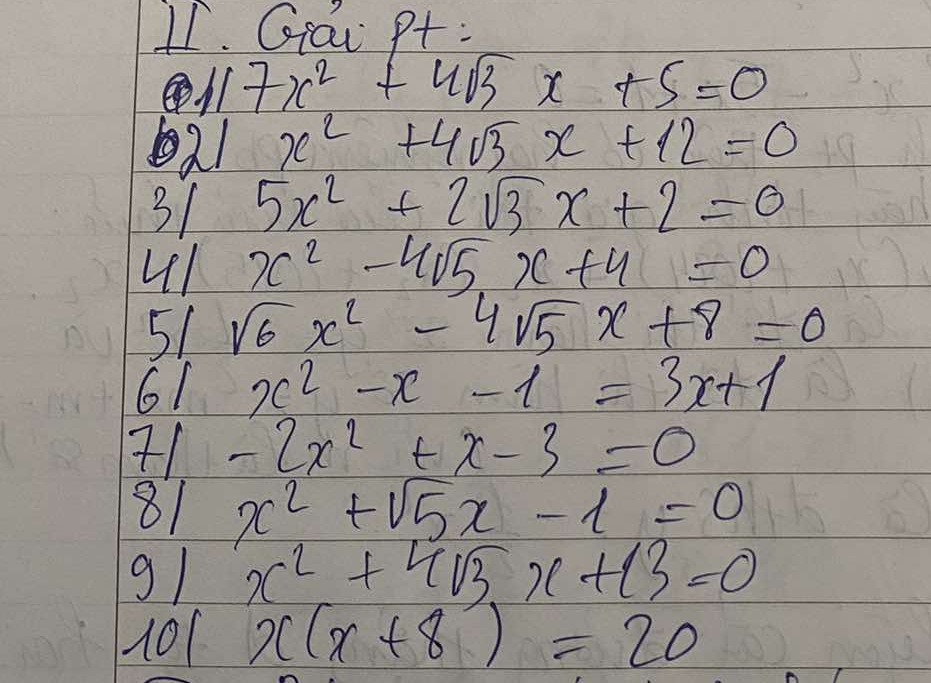 II. Giải pt:
1) 7x² + 4√3 x + 5 = 0
2) x² + 4√3 x + 12 = 0
3) 5x² + 2√3 x + 2 = 0
4) x² - 4√5 x + 4 = 0
5) √6 x² - 4√5 x + 8 = 0
6) x² - x - 1 = 3x + 1
7) -2x² + x - 3 = 0
8) x² + √5x - 1 = 0
9) x² + 4√3 x + 13 = 0
10) x(x + 8) = 20